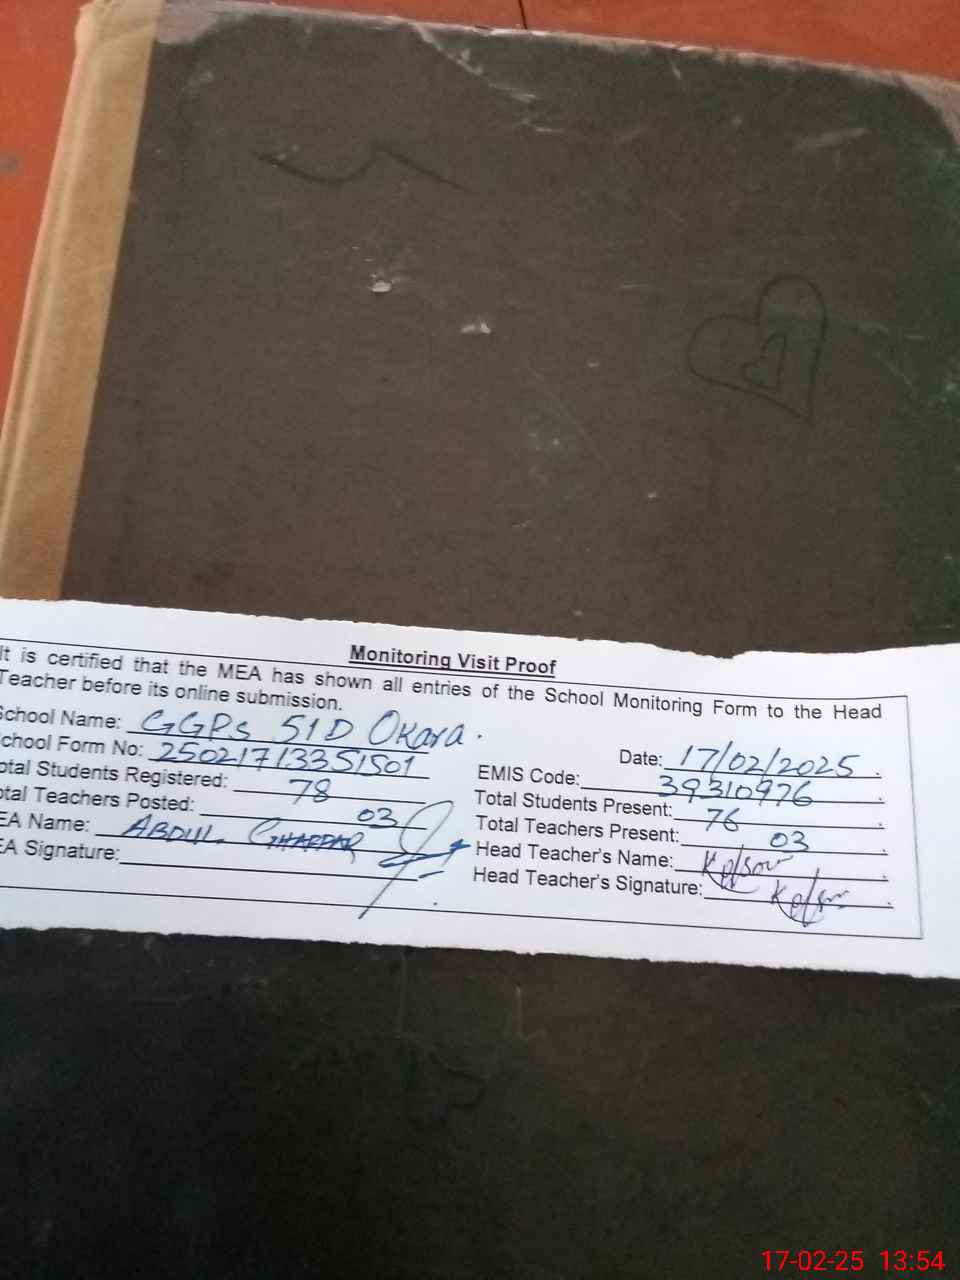 Monitoring Visit Proof
It is certified that the MEA has shown all entries of the School Monitoring Form to the Head
Teacher before its online submission.
School Name: GGPS 51D Okara.
Date: 17/02/2025
School Form No: 25021713351501
EMIS Code: 39310976
otal Students Registered: 78
Total Students Present: 76
otal Teachers Posted: 03
Total Teachers Present: 03
EA Name: ABDUL GHAFFAR
Head Teacher's Name:
EA Signature:
Head Teacher's Signature:
17-02-25 13:54